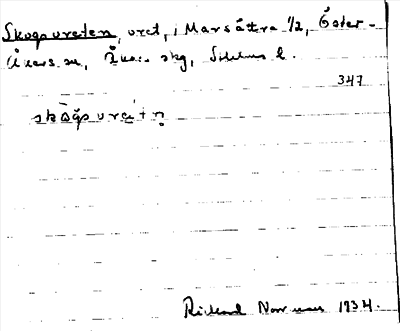 Skogsvreten, vret, i Marsättra 1/2, Öster-
Åkers sn, Åkers skg, Sthlms l.
347
skògsvret n
Rickard 1934.